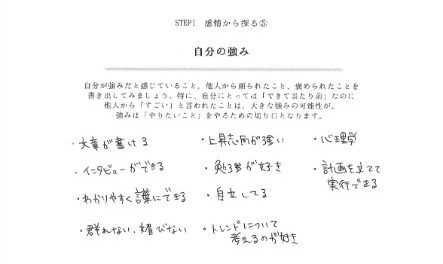 STEP1 感情から探る⑤
自分の強み
自分が強みだと感じていること、他人から頼られたこと、褒められたことを
書き出してみましょう。特に、自分にとっては「できて当たり前」なのに
他人から「すごい」と言われたことは、大きな強みの可能性が。
強みは「やりたいこと」をやるための切り口となります。
・文章が書ける
・インタビューができる
・わかりやすく言葉にできる
・群れない、媚びない
・上昇志向が強い
・勉強が好き
・自立してる
・トレンドについて
考えるのが好き
・心理学
・計画を立てて
実行できる